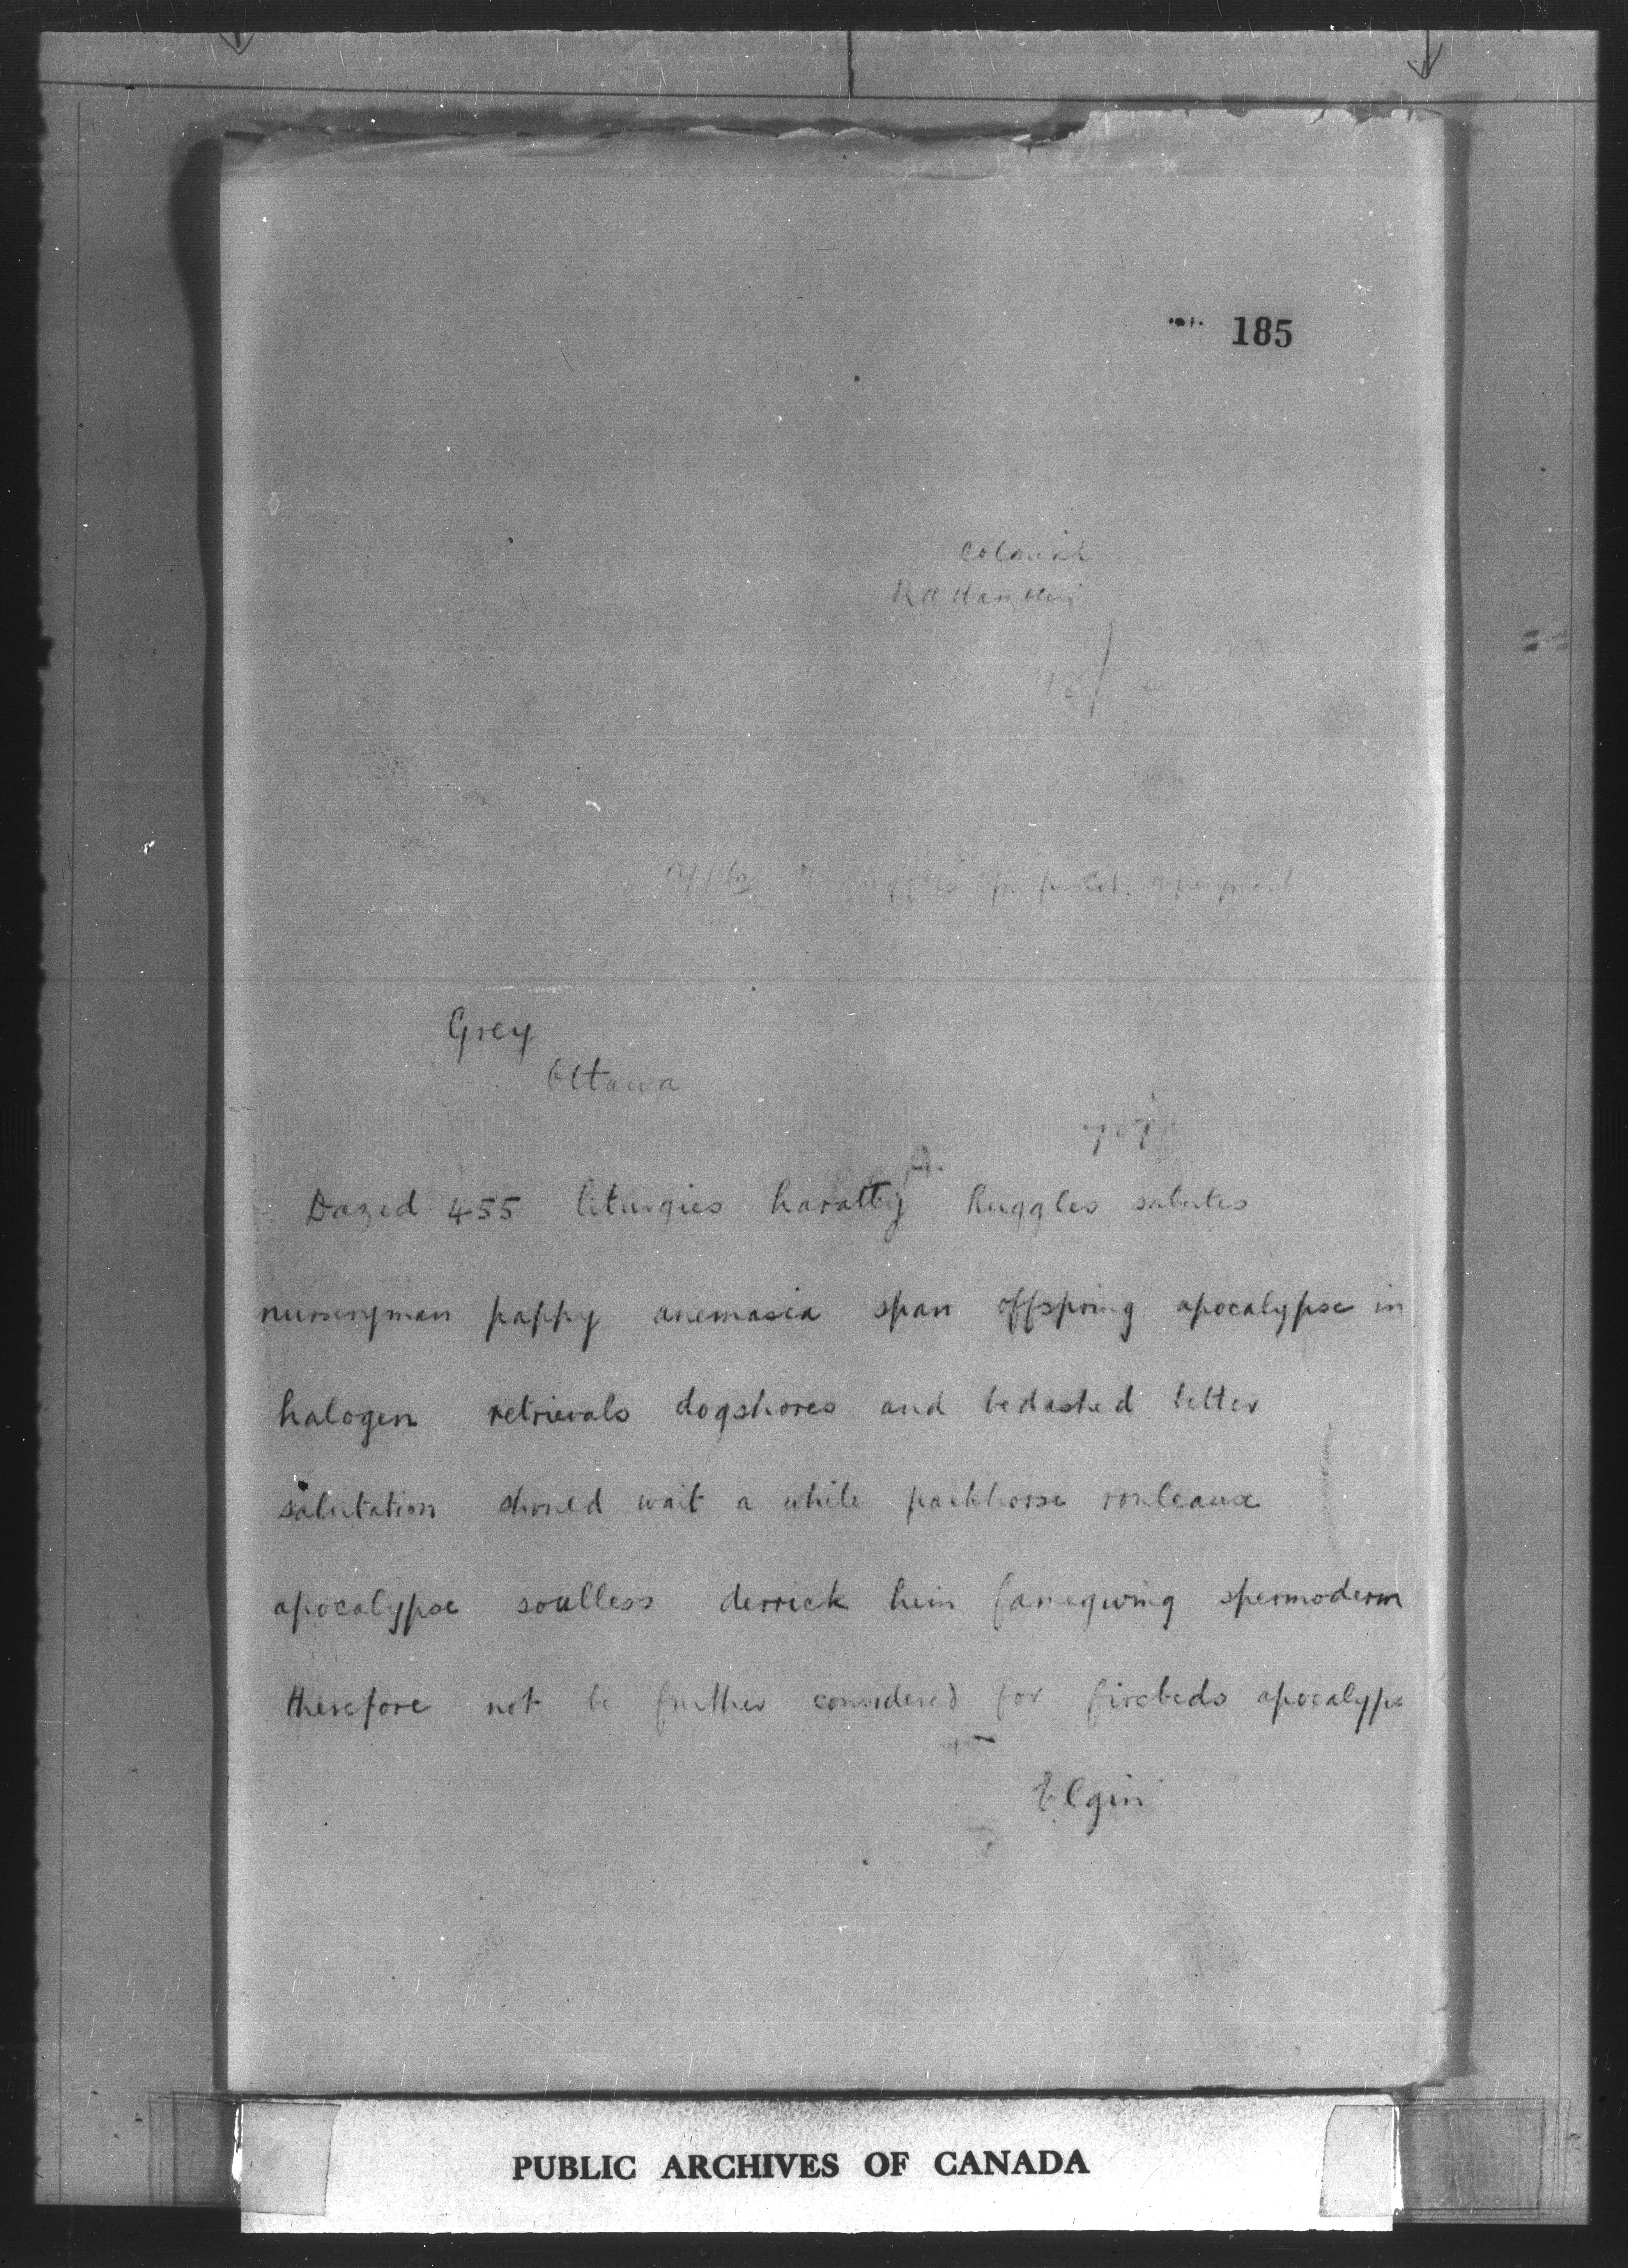 185
Colonial
Grey
Ottawa
Dazed 455 liturgies haratty Ruggles salutes
nurseryman pappy anemasia span offspring apocalypse in
halogen retrievals dogshores and bedashed letter
salutation should wait a while packhorse rouleaux
apocalypse soulless derrick hein spermoderm
therefore not be further considered for firebeds apocalypse
Elgin
PUBLIC ARCHIVES OF CANADA